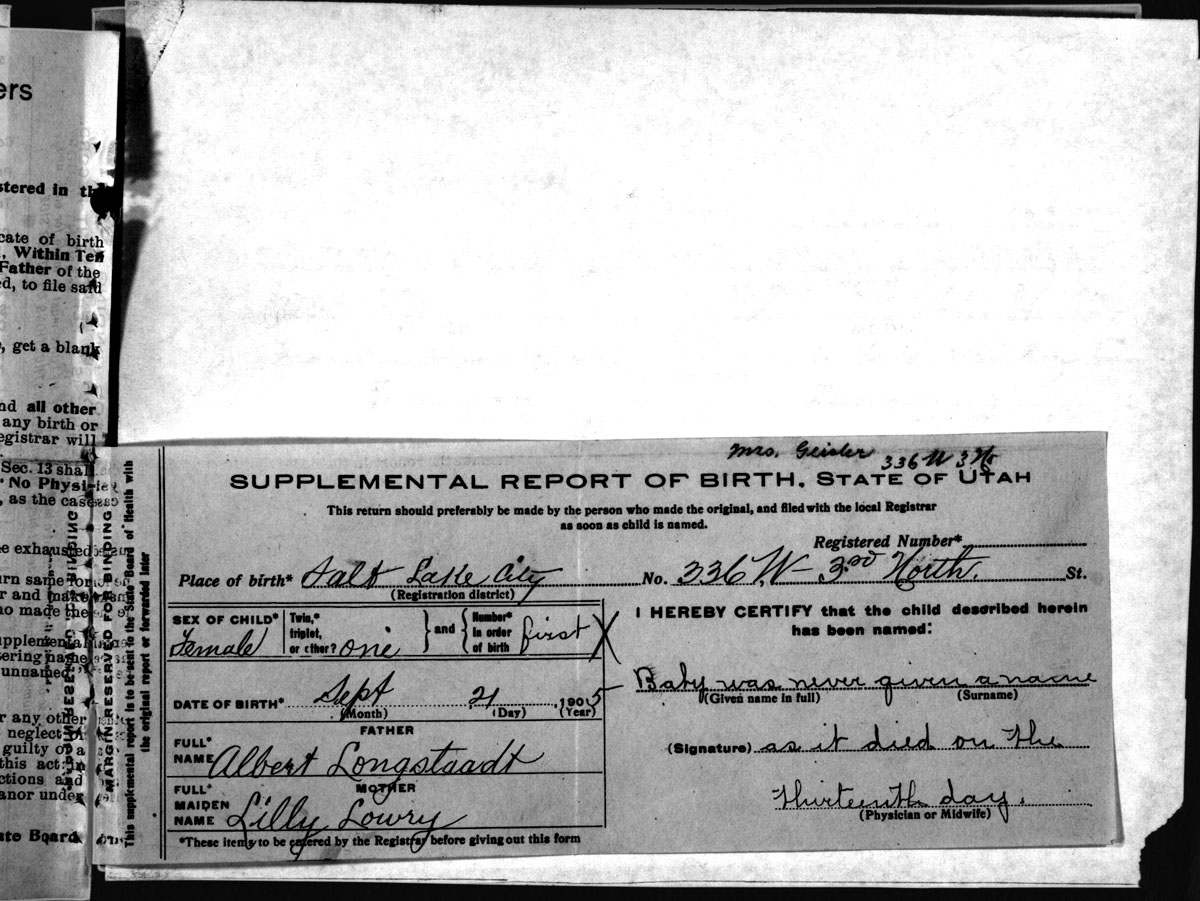 ers
stered in th
cate of birth
, Within Ten
Father of the
d, to file said
, get a blank
nd all other
any birth or
egistrar will
Sec. 13 shal
No Physi-
, as the case
e exhausted
urn same for
r and make
ho made the
upplemental
tering name
unnamed."
r any other
neglect
guilty of a
this act in
ctions and
anor under
te Board
MARGIN RESERVED FOR BINDING
This supplemental report is to be sent to the State Board of Health with
the original report or forwarded later
Mrs. Geisler 336 W 3 N
SUPPLEMENTAL REPORT OF BIRTH, STATE OF UTAH
This return should preferably be made by the person who made the original, and filed with the local Registrar
as soon as child is named.
Registered Number*
Place of birth* Salt Lake City No. 336 W - 3rd North. St.
(Registration district)
SEX OF CHILD* Female Twin,* triplet, or other? one and Number* in order of birth first X
DATE OF BIRTH* Sept 21, 1905
(Month) (Day) (Year)
FATHER
FULL* NAME Albert Longstaadt
MOTHER
FULL* MAIDEN NAME Lilly Lowry
*These items to be entered by the Registrar before giving out this form
I HEREBY CERTIFY that the child described herein
has been named:
Baby was never given a name
(Given name in full) (Surname)
(Signature) as it died on the
thirteenth day.
(Physician or Midwife)